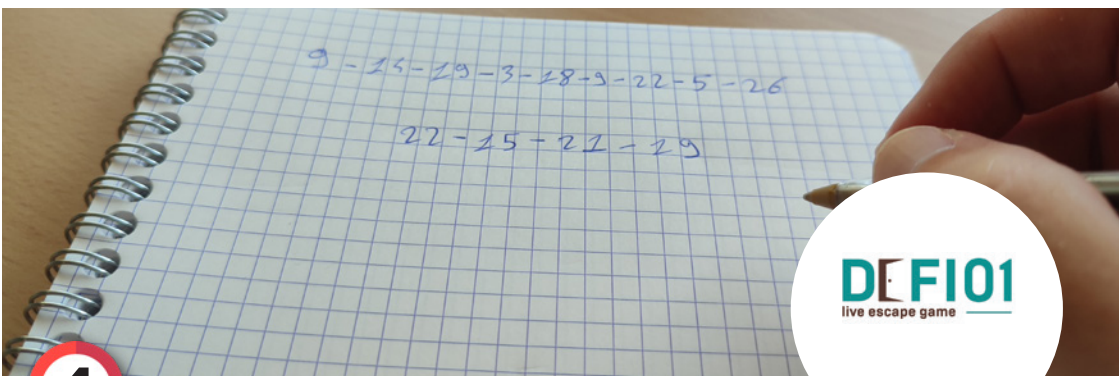 9-14-19-3-18-9-22-5-26
22-15-21-19
DEFI01
live escape game
4